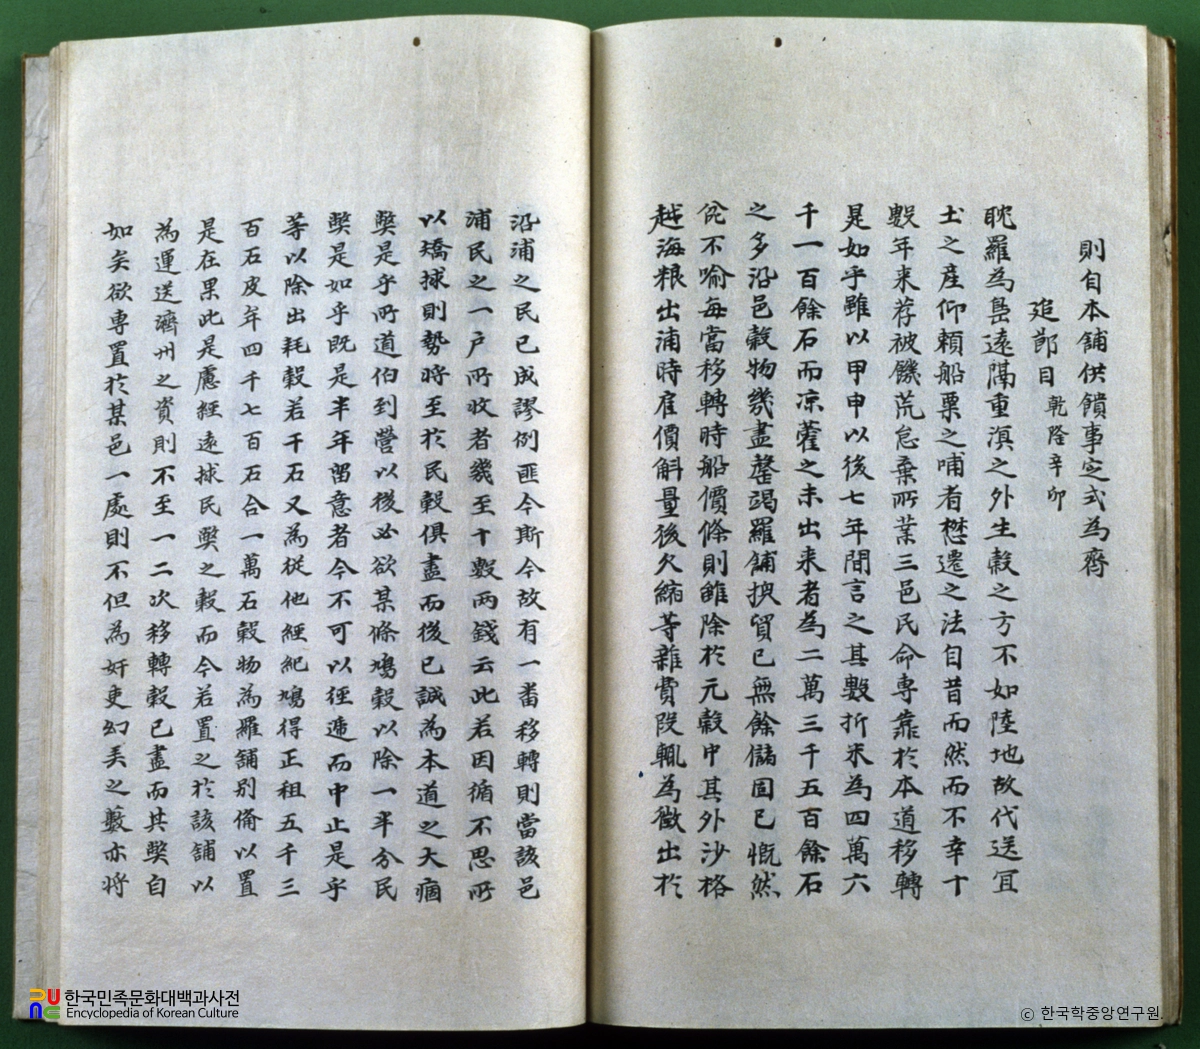 則自本舖供饋事定式為齊
追節目 乾隆辛卯
眈羅為島遠隔重溟之外生穀之方不如陸地故代送宜
土之産仰賴船粟之哺者懋遷之法自昔而然而不幸十
數年来荐被饑荒怠棄所業三邑民命專靠於本道移轉
是如乎雖以甲申以後七年間言之其數折米為四萬六
千一百餘石而凉藿之未出来者為二萬三千五百餘石
之多沿邑穀物幾盡罄竭羅舖換貿已無餘儲固已慨然
叱不喻每當移轉時船價條則雖除於元穀中其外沙格
越海粮出浦時雇價斛量後欠縮等雜費段輒為徵出於
沿浦之民已成謬例匪今斯今故有一番移轉則當該邑
浦民之一戶所收者幾至十數兩錢云此若因循不思所
以矯捄則勢將至於民穀俱盡而後已誠為本道之大痼
獘是乎所道伯到營以後必欲某條鳩穀以除一半分民
獘是如乎既是半年留意者今不可以徑遞而中止是乎
等以除出耗穀若干石又為從他經紀鳩得正租五千三
百石皮牟四千七百石合一萬石穀物為羅舖別備以置
是在果此是慮經遠捄民獘之穀而今若置之於該舖以
為運送濟州之資則不至一二次移轉穀已盡而其獘自
如矣欲專置於某邑一處則不但為奸吏幻弄之藪亦將
한국민족문화대백과사전
Encyclopedia of Korean Culture
© 한국학중앙연구원